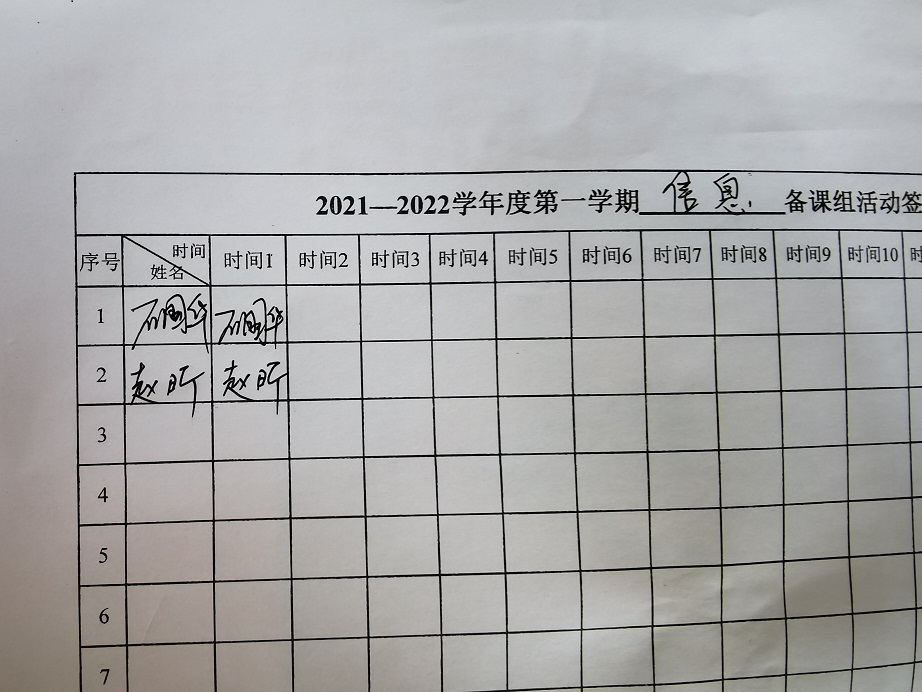 2021—2022学年度第一学期 信息 备课组活动签
序号 时间 姓名 时间1 时间2 时间3 时间4 时间5 时间6 时间7 时间8 时间9 时间10 时
1 石国华 石国华
2 赵昕 赵昕
3
4
5
6
7